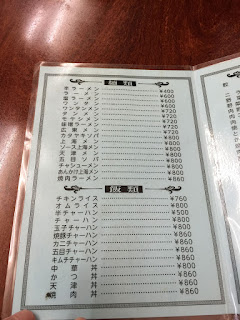 麺類
半ラーメン ¥400
ラーメン ¥600
塩ラーメン ¥600
ワンタン ¥600
ワンタンメン ¥720
タンメン ¥720
モヤシメン ¥720
味噌ラーメン ¥720
広東メン ¥720
カタヤキソバ ¥800
上海メン ¥800
ソース上海メン ¥800
天津メン ¥800
五目ソバ ¥800
チャシューメン ¥800
あんかけ上海メン ¥860
焼肉ラーメン ¥860
飯類
チキンライス ¥760
オムライス ¥800
半チャーハン ¥500
チャーハン ¥800
玉子チャーハン ¥860
焼豚チャーハン ¥860
カニチャーハン ¥860
五目チャーハン ¥860
キムチチャーハン ¥860
中華丼 ¥800
かつ丼 ¥860
天津丼 ¥860
焼肉丼 ¥860